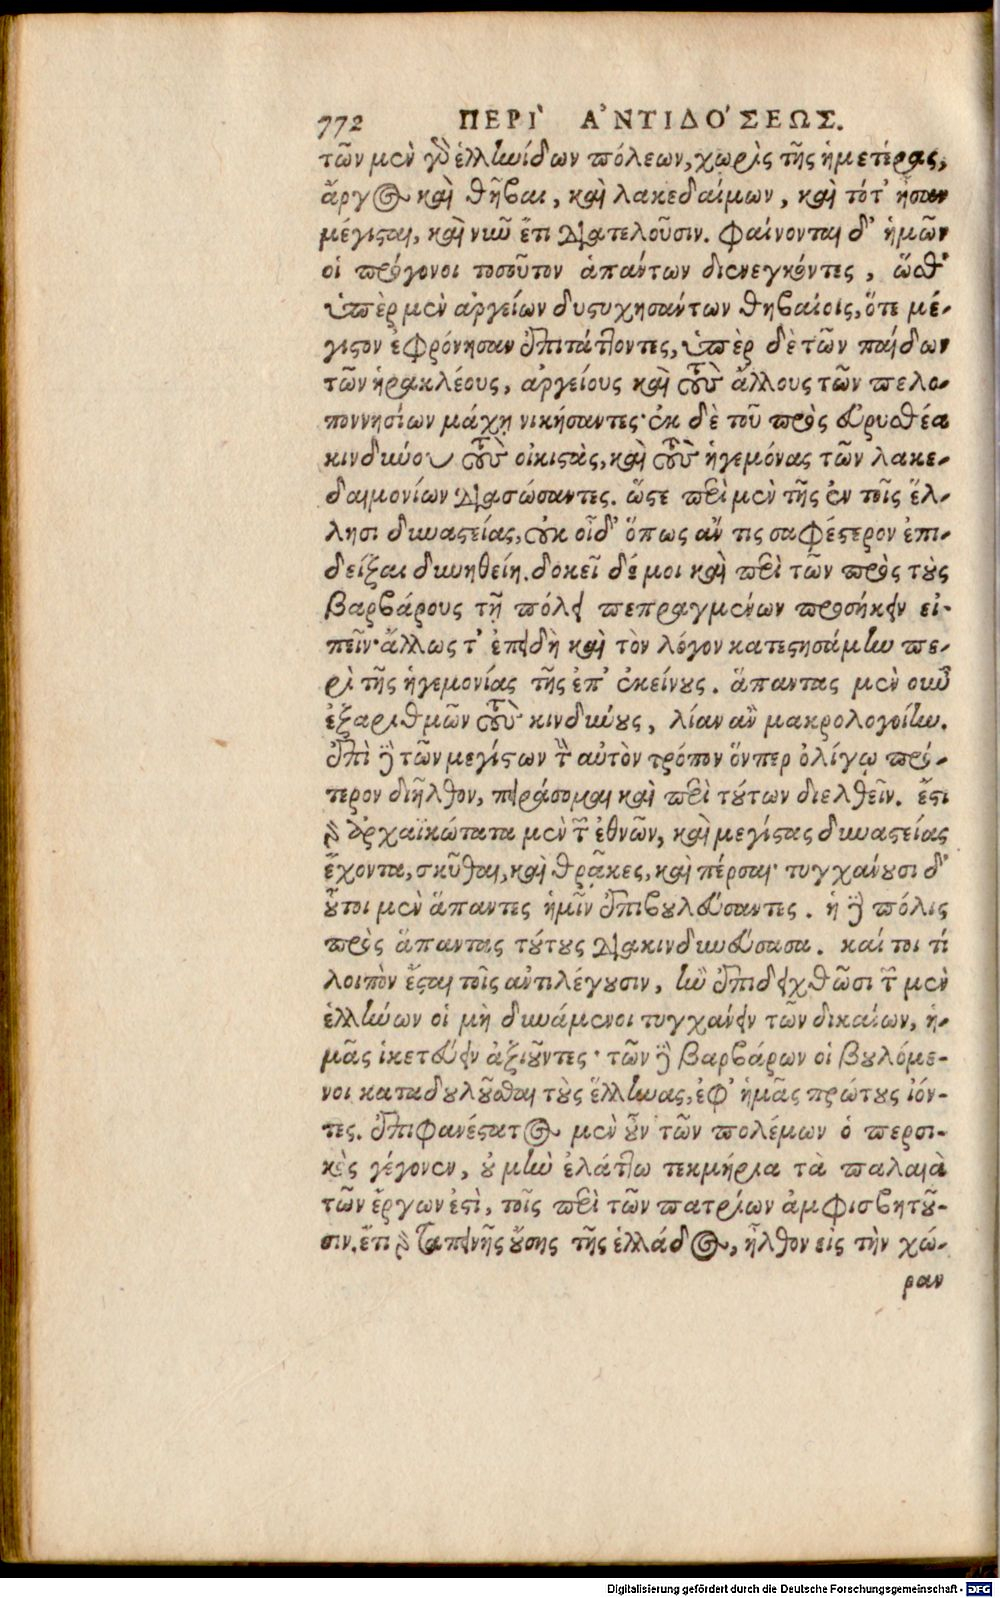 772 ΠΕΡΙ` ἈΝΤΙΔΌΣΕΩΣ.
τῶν μὲν γὸ ἑλληνίδων πόλεων, χωρὶς τῆς ἡμετέρας,
ἄργος καὶ θῆβαι, καὶ λακεδαίμων, καὶ τότ' ἦσαν
μέγισται, καὶ νῦν ἔτι διατελοῦσιν. φαίνονται δ' ἡμῶν
οἱ πρόγονοι τοσοῦτον ἁπάντων διενεγκόντες, ὥσθ'
ὑπὲρ μὲν ἀργείων δυςυχησάντων θηβαίοις, ὅτε μέ-
γιςον ἐφρόνησαν ἐπιτάττοντες, ὑπὲρ δὲ τῶν παίδων
τῶν ἡρακλέους, ἀργείους καὶ τοὺς ἄλλους τῶν πελο-
ποννησίων μάχῃ νικήσαντες· ἐκ δὲ τοῦ πρὸς εὐρυσθέα
κινδύνου τοὺς οἰκιςὰς, καὶ τοὺς ἡγεμόνας τῶν λακε-
δαιμονίων διασώσαντες. ὥςε περὶ μὲν τῆς ἐν τοῖς ἕλ-
λησι δυναςείας, οὐκ οἶδ' ὅπως ἄν τις σαφέςερον ἐπι-
δεῖξαι δυνηθείη. δοκεῖ δέ μοι καὶ περὶ τῶν πρὸς τοὺς
βαρβάρους τῇ πόλει πεπραγμένων προσήκειν εἰ-
πεῖν· ἄλλως τ' ἐπειδὴ καὶ τὸν λόγον κατεςησάμην πε-
ρὶ τῆς ἡγεμονίας τῆς ἐπ' ἐκείνους. ἅπαντας μὲν οὖν
ἐξαριθμῶν τοὺς κινδύνους, λίαν ἂν μακρολογοίην.
ἐπὶ δὲ τῶν μεγίςων τὸν αὐτὸν τρόπον ὅνπερ ὀλίγῳ πρό-
τερον διῆλθον, πειράσομαι καὶ περὶ τούτων διελθεῖν. ἔςι
γὸ ἀρχαϊκώτατα μὲν τῶν ἐθνῶν, καὶ μεγίςας δυναςείας
ἔχοντα, σκῦθαι, καὶ θρᾷκες, καὶ πέρσαι· τυγχάνουσι δ'
οὗτοι μὲν ἅπαντες ἡμῖν ἐπιβουλεύσαντες. ἡ δὲ πόλις
πρὸς ἅπαντας τούτους διακινδυνεύσασα. καί τοι τί
λοιπὸν ἔςαι τοῖς ἀντιλέγουσιν, ἢν ἐπιδειχθῶσι τῶν μὲν
ἑλλήνων οἱ μὴ δυνάμενοι τυγχάνειν τῶν δικαίων, ἡ-
μᾶς ἱκετεύειν ἀξιοῦντες· τῶν δὲ βαρβάρων οἱ βουλόμε-
νοι καταδουλοῦσθαι τοὺς ἕλληνας, ἐφ' ἡμᾶς πρώτους ἰόν-
τες. ἐπιφανέςατος μὲν οὖν τῶν πολέμων ὁ περσι-
κὸς γέγονεν, οὐ μὴν ἐλάττω τεκμήρια τὰ παλαιὰ
τῶν ἔργων ἐςὶ, τοῖς περὶ τῶν πατρίων ἀμφισβητοῦ-
σιν. ἔτι γὸ ταπεινῆς οὔσης τῆς ἑλλάδος, ἦλθον εἰς τὴν χώ-
ραν
Digitalisierung gefördert durch die Deutsche Forschungsgemeinschaft - DFG